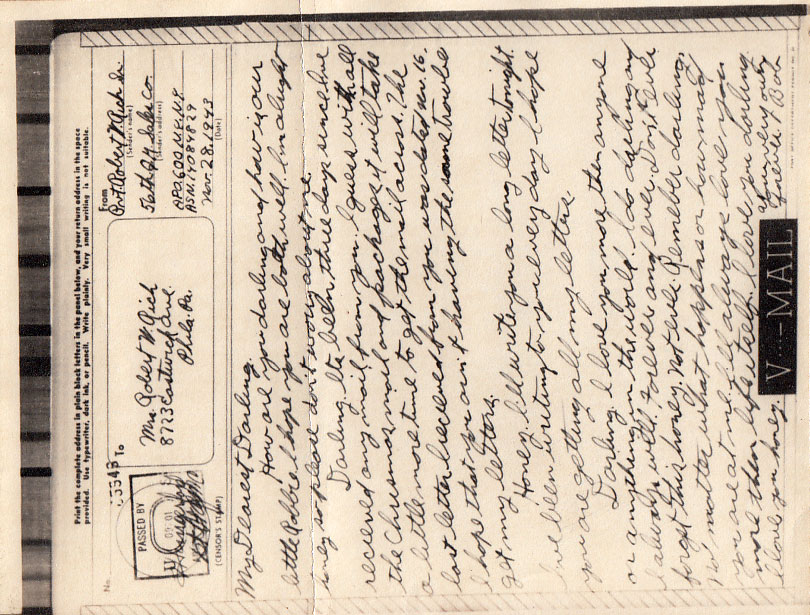 Print the complete address in plain block letters in the panel below, and your return address in the space
provided. Use typewriter, dark ink, or pencil. Write plainly. Very small writing is not suitable.
No.
PASSED BY
(CENSOR'S STAMP)
To
Mrs. Robert W. Rich
8723 Eastwood Ave.
Phila. Pa.
From
Pvt Robert W. Rich Jr.
(Sender's name)
56th Co.
(Sender's address)
APO 600 N.Y. N.Y.
ASN. 14084829
Nov. 28, 1943
(Date)
My Dearest Darling,
How are you darling and how is your
little Robbie I hope you are both well. I'm alright
honey so please don't worry about me.
Darling, Its been three days since I've
recieved any mail from you. I guess with all
the Chrismas mail and packages it will take
a little more time to get the mail across. The
last letter I recieved from you was dated Nov. 16.
I hope that you ain't having the same trouble
get my letters.
Honey, I'll write you a long letter tonight.
I've been writing to you every day. I hope
you are getting all my letters.
Darling, I love you more then anyone
or anything in this world. I do darling any
I always will. Forever and ever. Don't ever
forget this honey. Not ever. Remeber darling,
No matter what happens or how mad
you are at me. I'll always love you
more then life itself. I love you darling
I love you honey.
Your very own
Forever. Bob
V···—MAIL